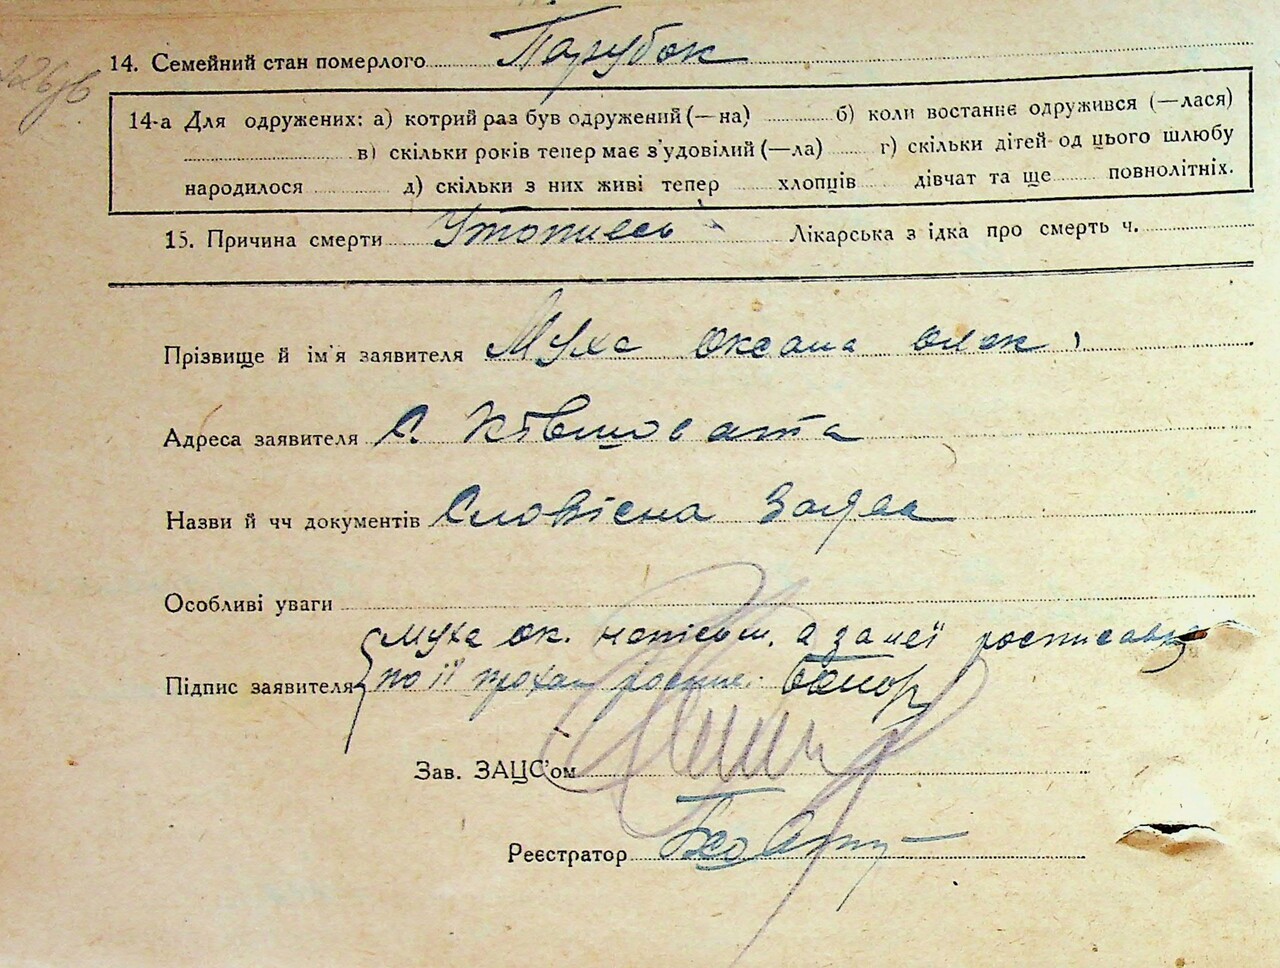 14. Семейний стан померлого Парубок
14-а Для одружених: а) котрий раз був одружений (—на) б) коли востаннє одружився (—лася)
в) скільки років тепер має з'удовілий (—ла) г) скільки дітей од цього шлюбу
народилося д) скільки з них живі тепер хлопців дівчат та ще повнолітніх.
15. Причина смерти Утопивсь Лікарська з ідка про смерть ч.
Прізвище й ім'я заявителя Муха Оксана Олек
Адреса заявителя С.
Назви й чч документів Словісна Заява
Особливі уваги
Муха Ок. а за неї
Підпис заявителя по її
Зав. ЗАЦС'ом
Реєстратор